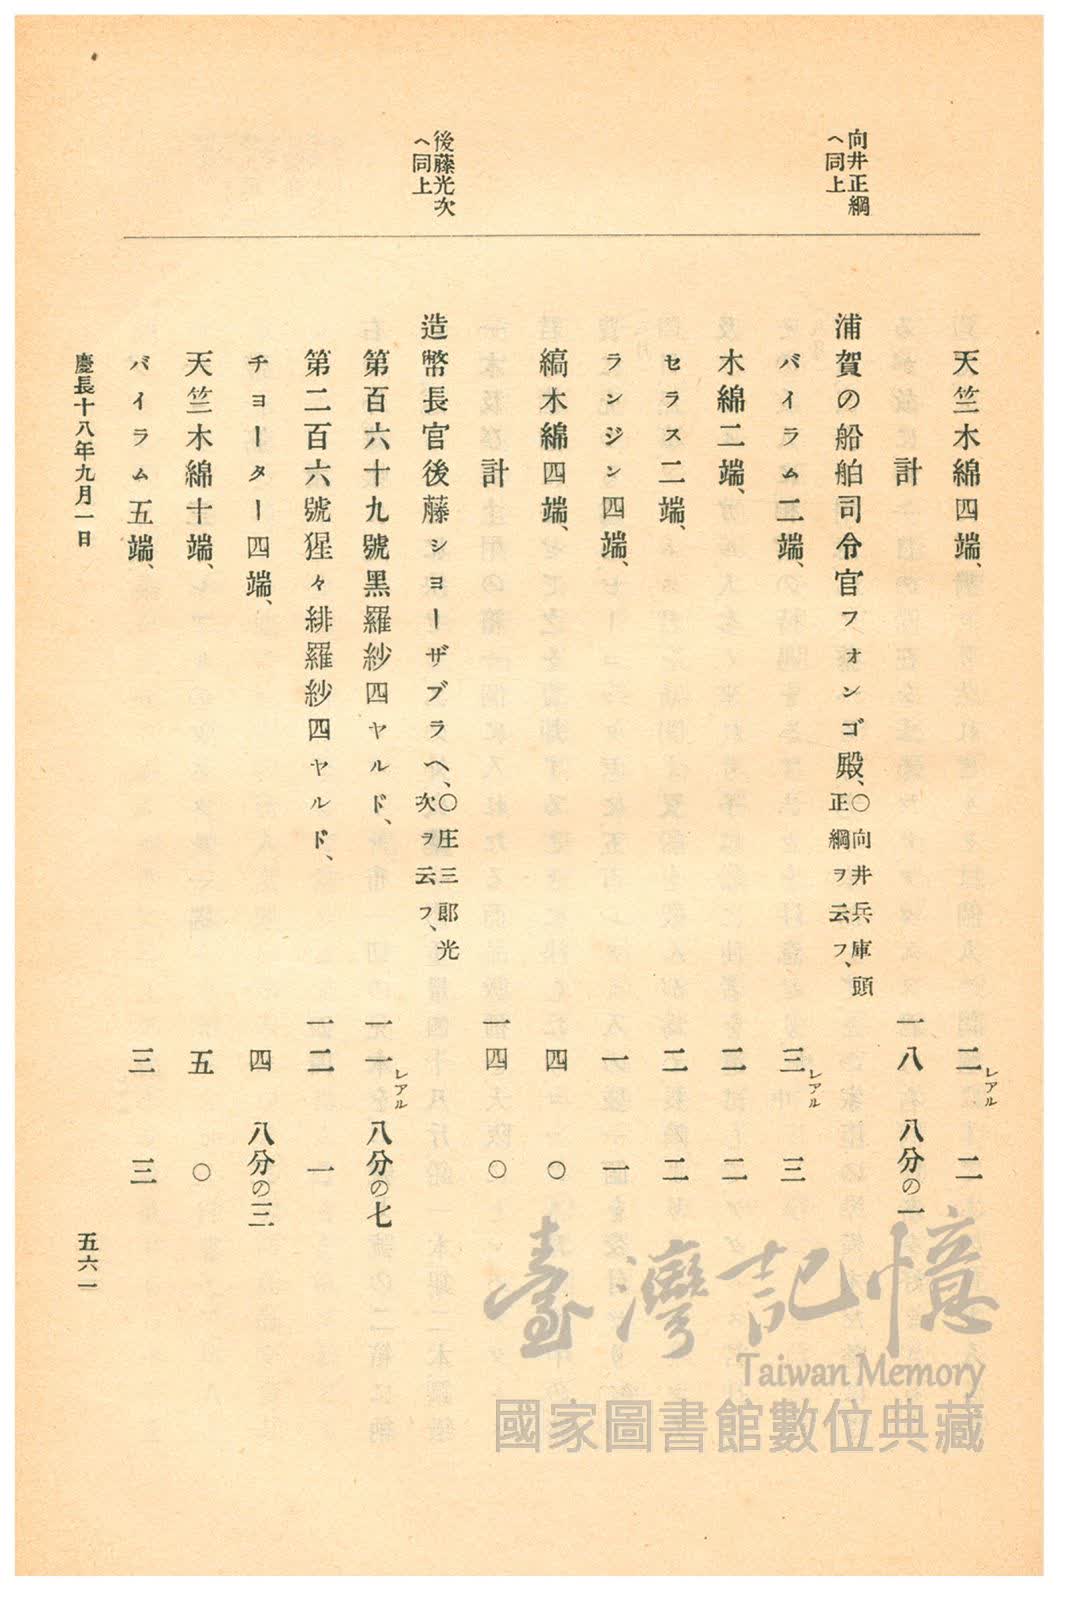 向井正綱
ヘ同上
後藤光次
ヘ同上
天竺木綿四端、 二レアル 二
計 一八 八分の一
浦賀の船舶司令官フォンゴ殿、〇向井兵庫頭正綱ヲ云フ、
バイラム三端、 三レアル 三
木綿二端、 二 二
セラス二端、 二 二
ランジン四端、 一 一
縞木綿四端、 四 〇
計 一四 〇
造幣長官後藤ショーザブラヘ、〇庄三郎光次ヲ云フ、
第百六十九號黑羅紗四ヤルド、 一一レアル 八分の七
第二百六號猩々緋羅紗四ヤルド、 一二 一
チョーター四端、 四 八分の三
天竺木綿十端、 五 〇
バイラム五端、 三 三
慶長十八年九月一日
五六一
臺灣記憶
Taiwan Memory
國家圖書館數位典藏